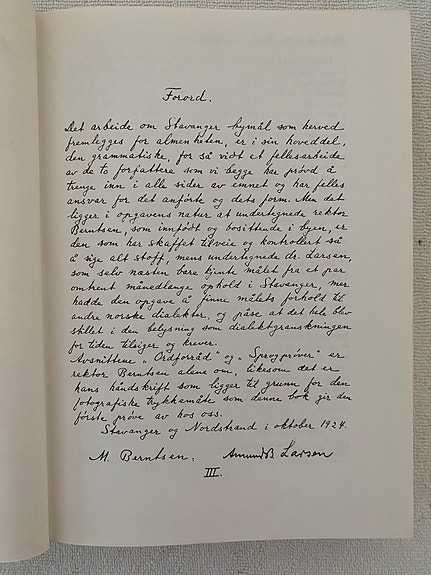 Forord.
Det arbeide om Stavanger bymål som herved
fremlegges for almenheten, er i sin hoveddel,
den grammatiske, for så vidt et fellesarbeide
av de to forfattere som vi begge har prøvd å
trenge inn i alle sider av emnet og har felles
ansvar for det anførte og dets form. Men det
ligger i opgavens natur at undertegnede rektor
Berntsen, som innfødt og bosittende i byen, er
den som har skaffet tilveie og kontrollert så
å sige alt stoff, mens undertegnede dr. Larsen,
som selv nesten bare kjente målet fra et par
omtrent månedlange ophold i Stavanger, mer
hadde den opgave å finne målets forhold til
andre norske dialekter, og påse at det hele blev
stillet i den belysning som dialektgranskningen
for tiden tilsiger og krever.
Avsnittene „Ordforråd" og „Sprogprøver" er
rektor Berntsen alene om, likesom det er
hans håndskrift som ligger til grunn for den
fotografiske trykkemåte som denne bok gir den
første prøve av hos oss.
Stavanger og Nordstrand i oktober 1924.
M. Berntsen. Amund B. Larsen
III.